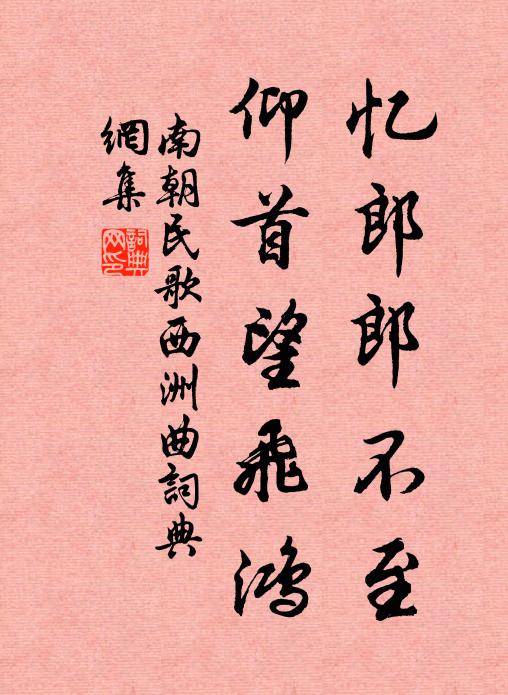 忆郎郎不至
仰首望飛鸿
南朝民歌西洲曲詞典
網集
詞典
网印